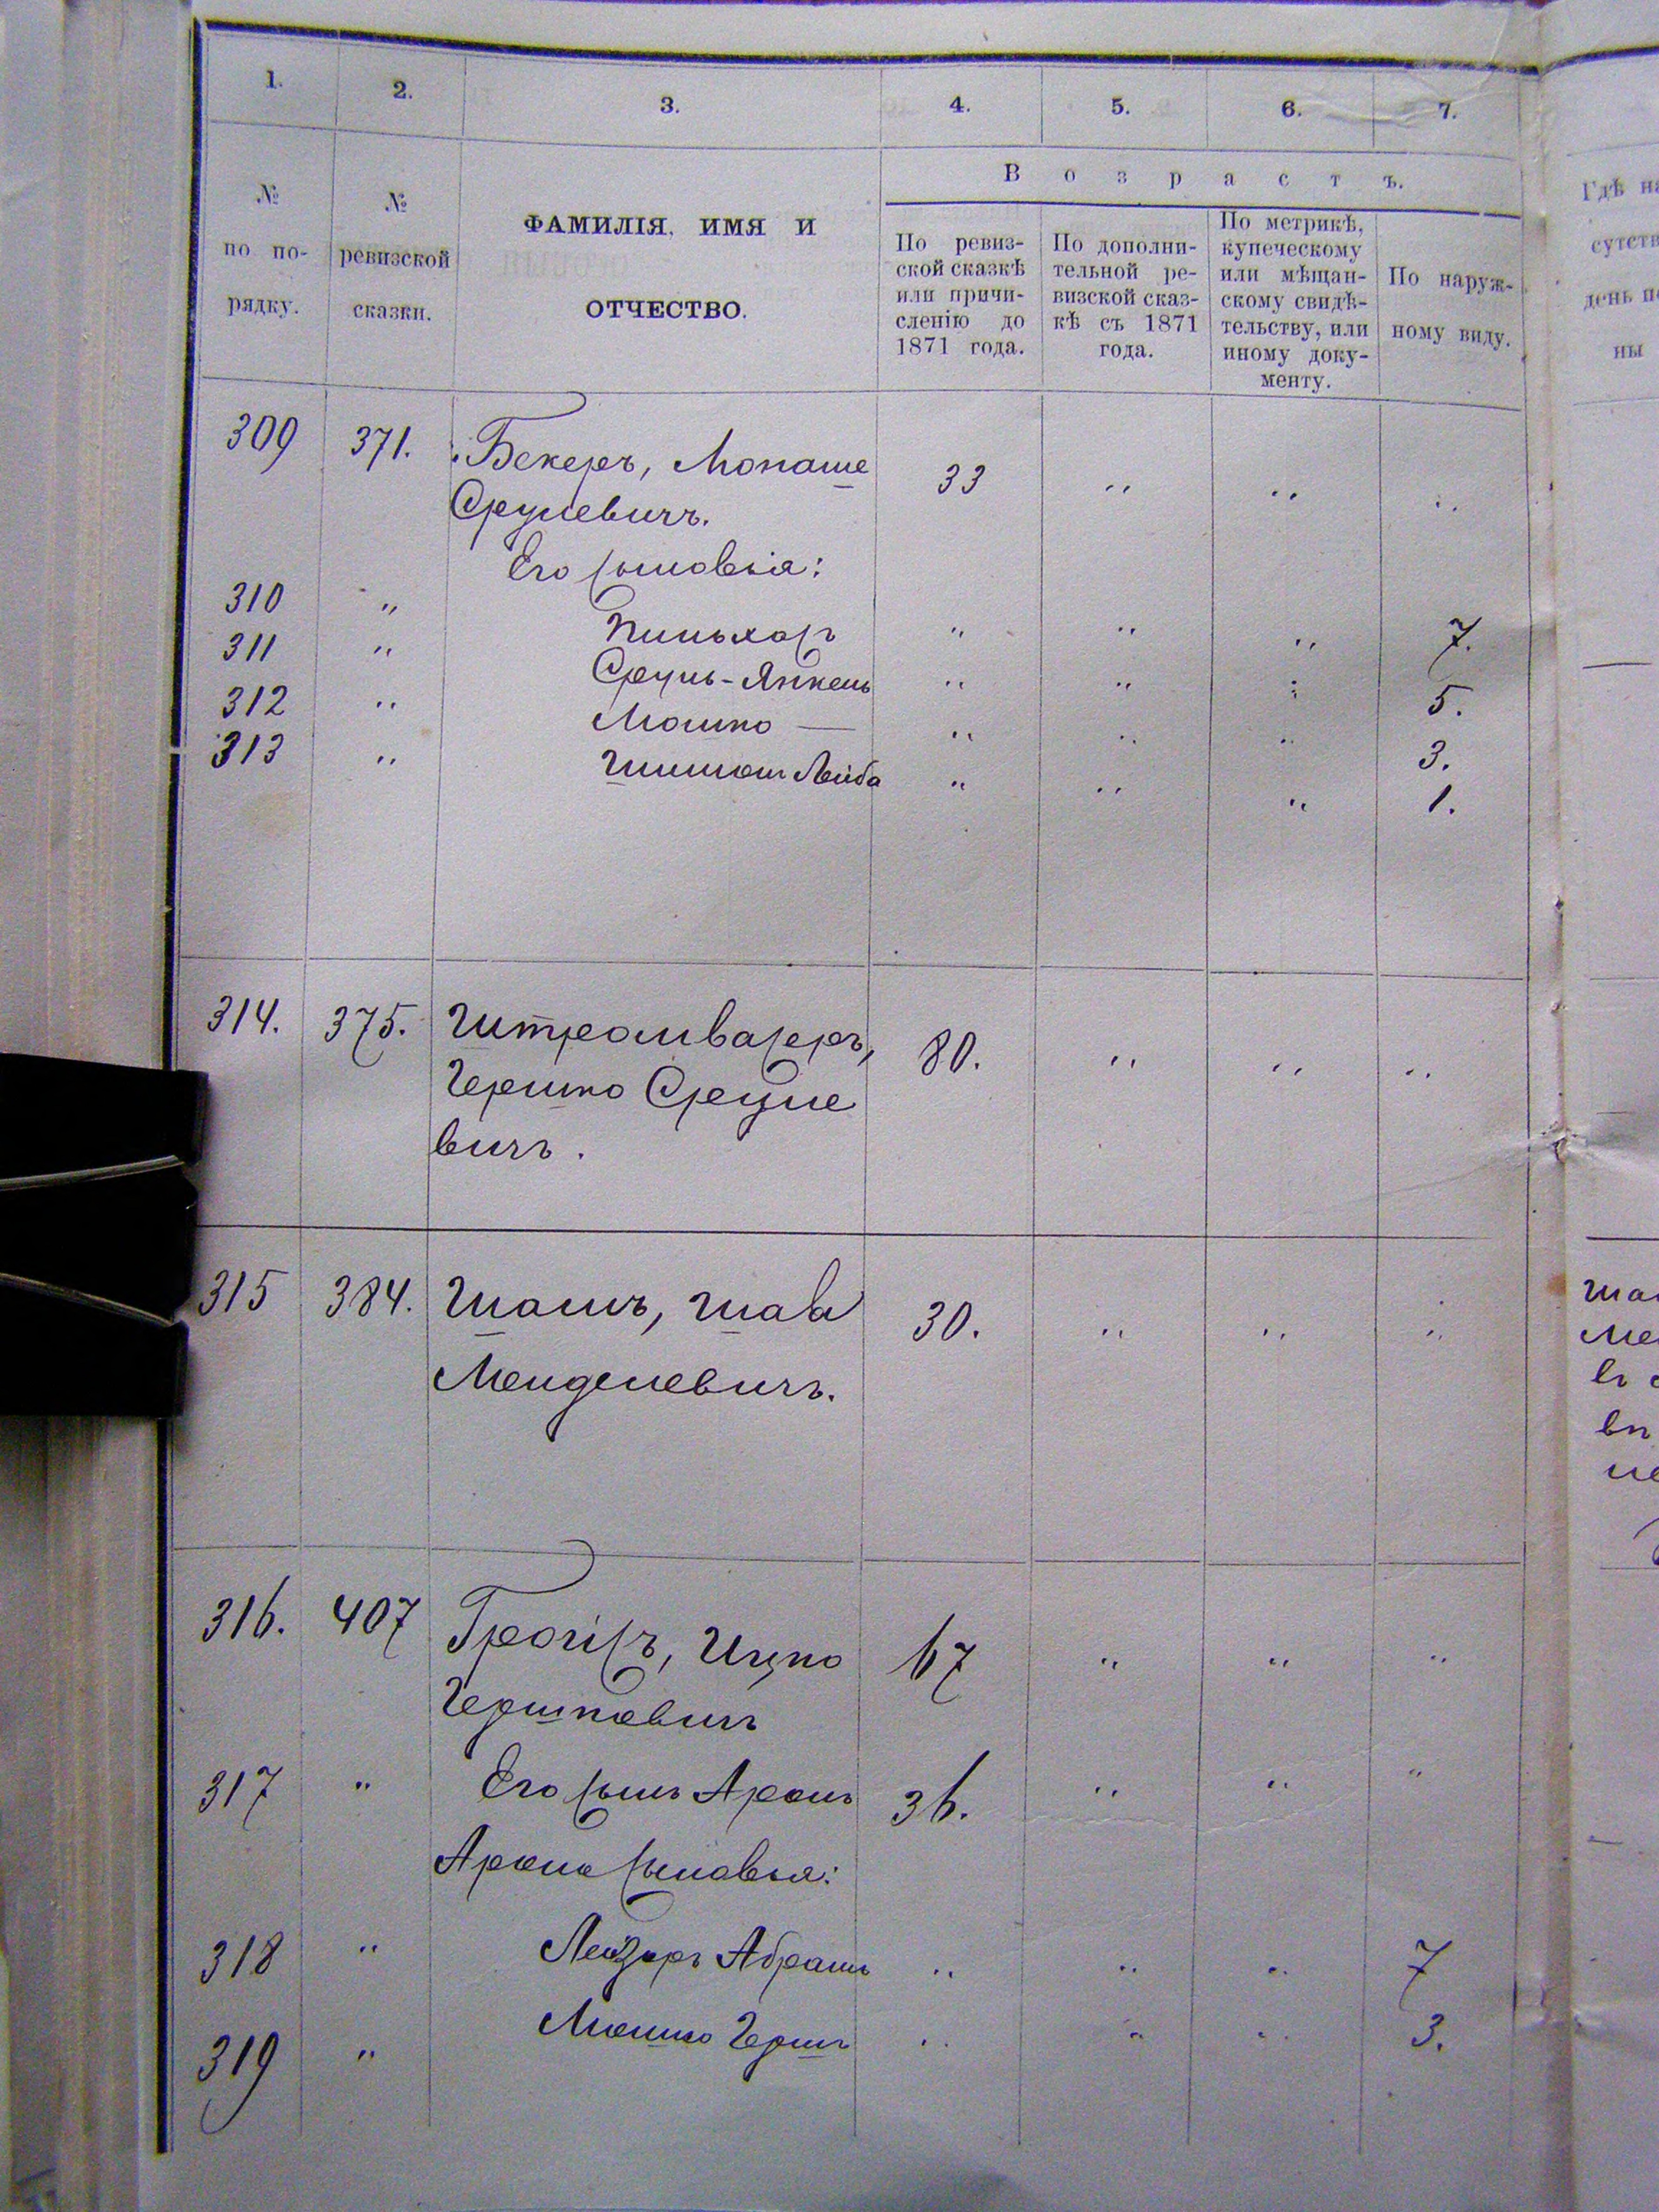 1. 2. 3. 4. 5. 6. 7.
№ по порядку.
№ ревизской сказки.
ФАМИЛІЯ, ИМЯ И
ОТЧЕСТВО.
Возрастъ.
По ревиз-
ской сказкѣ
или причи-
сленію до
1871 года.
По дополни-
тельной ре-
визской сказ-
кѣ съ 1871
года.
По метрикѣ,
купеческому
или мѣщан-
скому свидѣ-
тельству, или
иному доку-
менту.
По наруж-
ному виду.
309 371. Бекеръ, Монаше 33 " " "
Срулевичъ.
Его сыновья:
310 " Пиньхасъ " " " 7.
311 " Сруль-Янкель " " " 5.
312 " Мошко — " " " 3.
313 " Шимон Лейба " " " 1.
314. 375. Штромвасеръ, 80. " " "
Гершко Сруле
вичъ.
315 384. Шамъ, Шая 30. " " "
Менделевичъ.
316. 407 Ицко 67 " " "
Гершковичъ
317 " Его сынъ Аронъ 36. " " "
Арона сыновья:
318 " Лейзеръ Абрамъ " " " 7
319 " Мошко Гершъ " " " 3.
Гдѣ